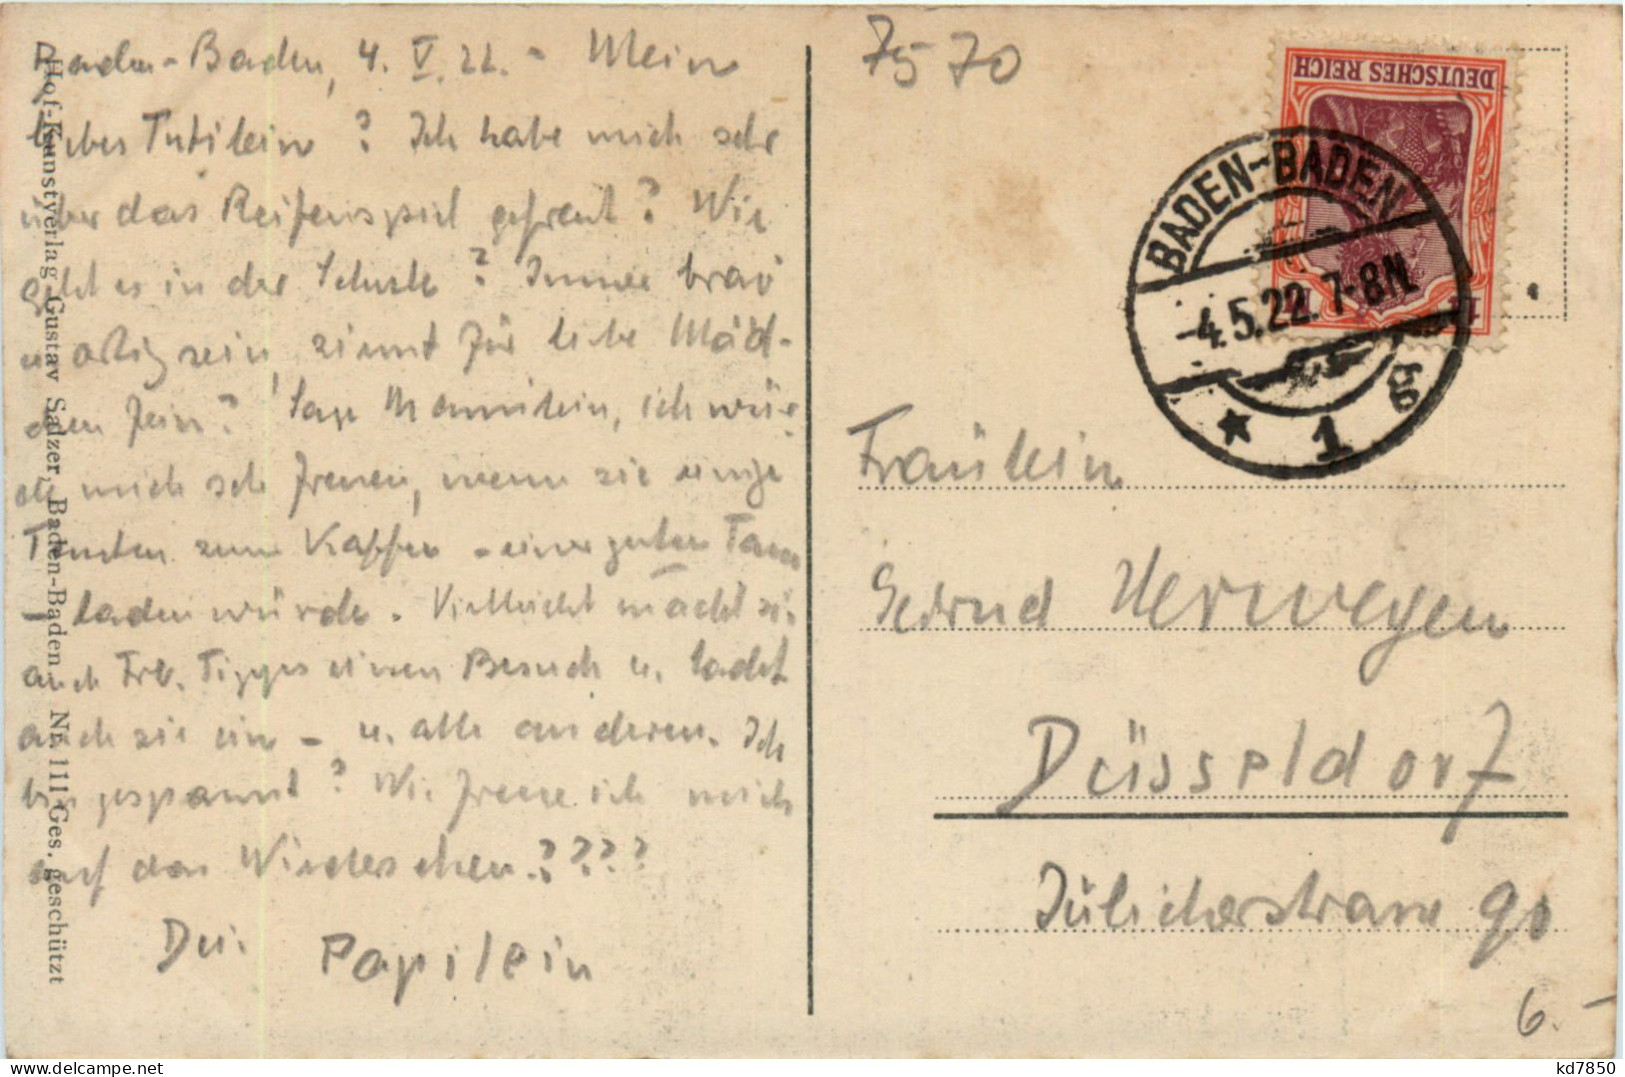 Baden-Baden, 4. V. 22. - Mein
liebes Tutilein? Ich habe mich sehr
über das Reifenspiel gefreut? Wie
geht es in der Schule? Immer brav
u. artig sein, ziemt für liebe Mäd-
chen fein? Sage Mamilein, ich wür-
de mich sehr freuen, wenn sie einige
Tanten zum Kaffee - einer guten Tasse
- laden würde. Vielleicht macht sie
auch Frl. Tigges einen Besuch u. ladet
auch sie ein - u. alle anderen. Ich
bin gespannt? Wie freue ich mich
auf das Wiedersehen????
Dei. Papilein
Hof-Kunstverlag Gustav Salzer, Baden-Baden. Nr. 111 Ges. geschützt
7570
DEUTSCHES REICH
BADEN-BADEN
-4.5.22. 7-8N.
* 1 g
Fräulein
Gertrud Herwegen
Düsseldorf
Jülicherstrasse 90
6.-
kd7850